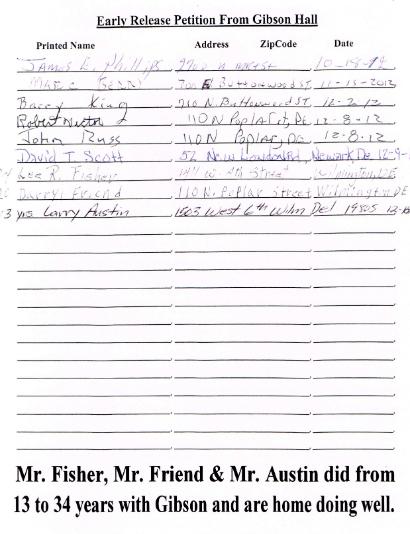 Early Release Petition From Gibson Hall
Printed Name Address ZipCode Date
James E. Phillips 2700 N 10-18-12
Marc 700 E Buttonwood ST. 11-15-2012
Barry King 710 N. Buttonwood ST. 12-2-12
Robert 110 N Poplar ST, DE 12-8-12
John Russ 110 N Poplar, DE 12-8-12
David T Scott 52 New London Rd, Newark De 12-9-
Lee R. Fisher W. 4th Street Wilmington DE
Darryl Friend 110 N. Poplar Street Wilmington DE
13 yrs Larry Austin 1503 West 6th Wilm Del 19805 12-
Mr. Fisher, Mr. Friend & Mr. Austin did from
13 to 34 years with Gibson and are home doing well.